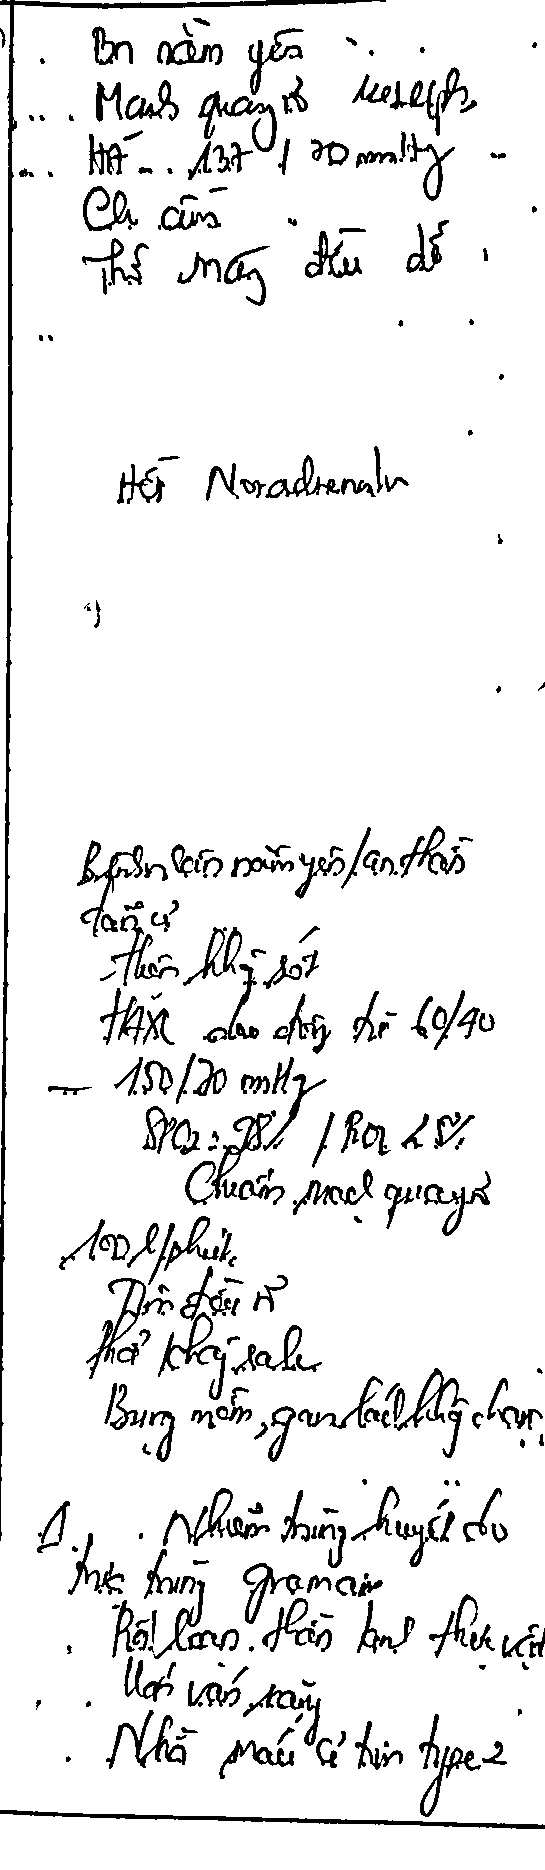 Bn nằm yên
Mạch quay rõ
HA 137 / 70 mmHg
Chi ấm
Thở máy đều dễ
Hết Noradrenalin
Bệnh nhân nằm yên / an thần
- thân không sốt
HAXL dao động từ 60/40
- 150/70 mmHg
SPO2: 98% /
mạch quay rõ
100 l/phút
Tim đều rõ
thở không rale
Bụng mềm, gan lách không chạm
Δ. Nhiễm trùng huyết do
trực trùng gram âm
Rối loạn thần kinh thực vật
Uốn ván nặng
Nhồi máu cơ tim type 2